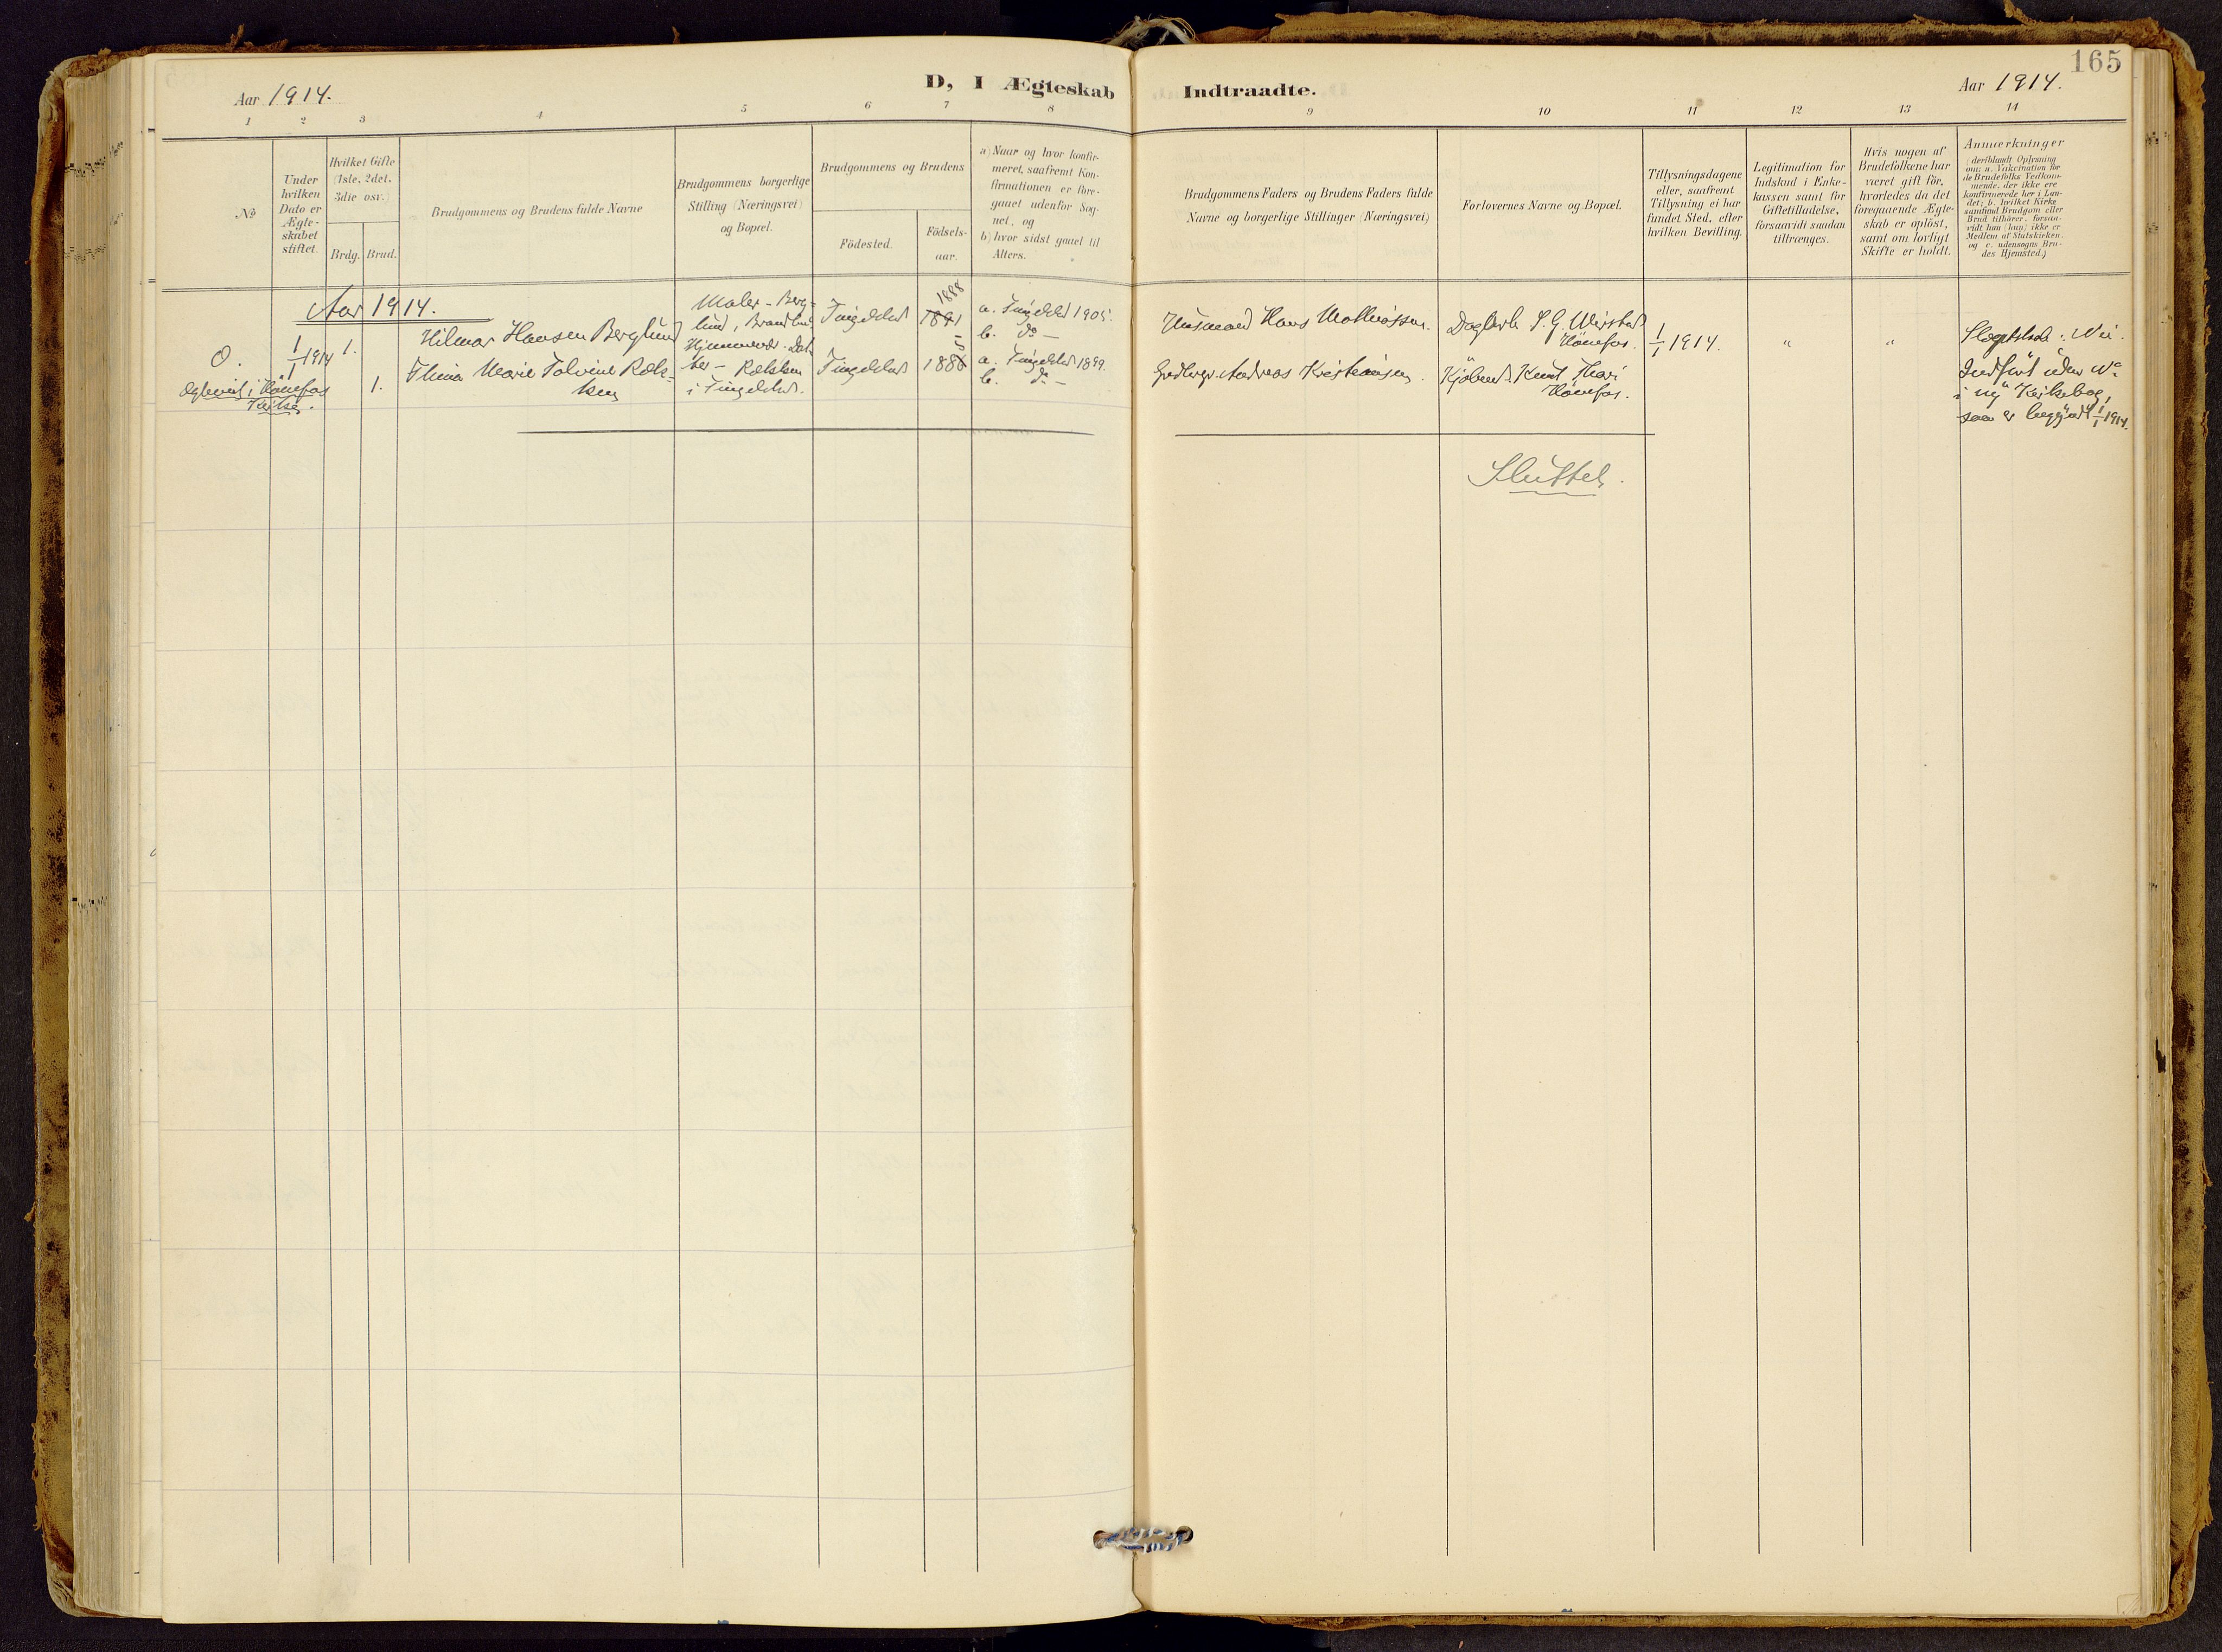 165
Aar 1914.
D, I Ægteskab Indtraadte.
Aar 1914.
1 2 3 4 5 6 7 8 9 10 11 12 13 14
No
Under
hvilken
Dato er
Ægte-
skabet
stiftet.
Hvilket Gifte
(1ste, 2det,
3die osv.)
Brdg. Brud.
Brudgommens og Brudens fulde Navne
Brudgommens borgerlige
Stilling (Næringsvei)
og Bopæl.
Brudgommens og Brudens
Fødested.
Fødsels-
aar.
a) Naar og hvor konfir-
meret, saafremt Kon-
firmationen er fore-
gaaet udenfor Sog-
net, og
b) hvor sidst gaaet til
Alters.
Brudgommens Faders og Brudens Faders fulde
Navne og borgerlige Stillinger (Næringsvei)
Forlovernes Navne og Bopæl.
Tillysningsdagene
eller, saafremt
Tillysning ei har
fundet Sted, efter
hvilken Bevilling.
Legitimation for
Indskud i Enke-
kassen samt for
Giftetilladelse,
forsaavidt saadan
tiltrænges.
Hvis nogen af
Brudefolkene har
været gift før,
hvorledes da det
foregaaende Ægte-
skab er opløst,
samt om lovligt
Skifte er holdt.
Anmærkninger
(deriblandt Oplysning
om: a. Vakcination for
de Brudefolks Vedkom-
mende, der ikke ere
konfirmerede her i Lan-
det; b. hvilket Kirke
samfund Brudgom eller
Brud tilhører, forsaa-
vidt han (hun) ikke er
Medlem af Statskirken.
og c. udensogns Bru-
des Hjemsted.)
Aar 1914.
0.
1/1 1914
1.
Hilmar Hansen Berglund
Maler - Berg-
lund, Brandbu
1888
1891
a. Tingelstad 1905.
b. do -
Husmand Hans Mathiassen.
Hønefos.
1/1 1914.
"
"
Slægtskab: Nei.
i Hønefos
Kirke.
1.
Thina Marie Tolvine Roek-
ken
i Tingelstad.
Tingelstad
1888
5
a. Tingelstad 1899.
b. do -
Andreas Kristiansen.
Knut Thori
Hønefos.
Indført uden No
i ny Kirkebog,
som er begyndt 1/1 1914.
Sluttet.